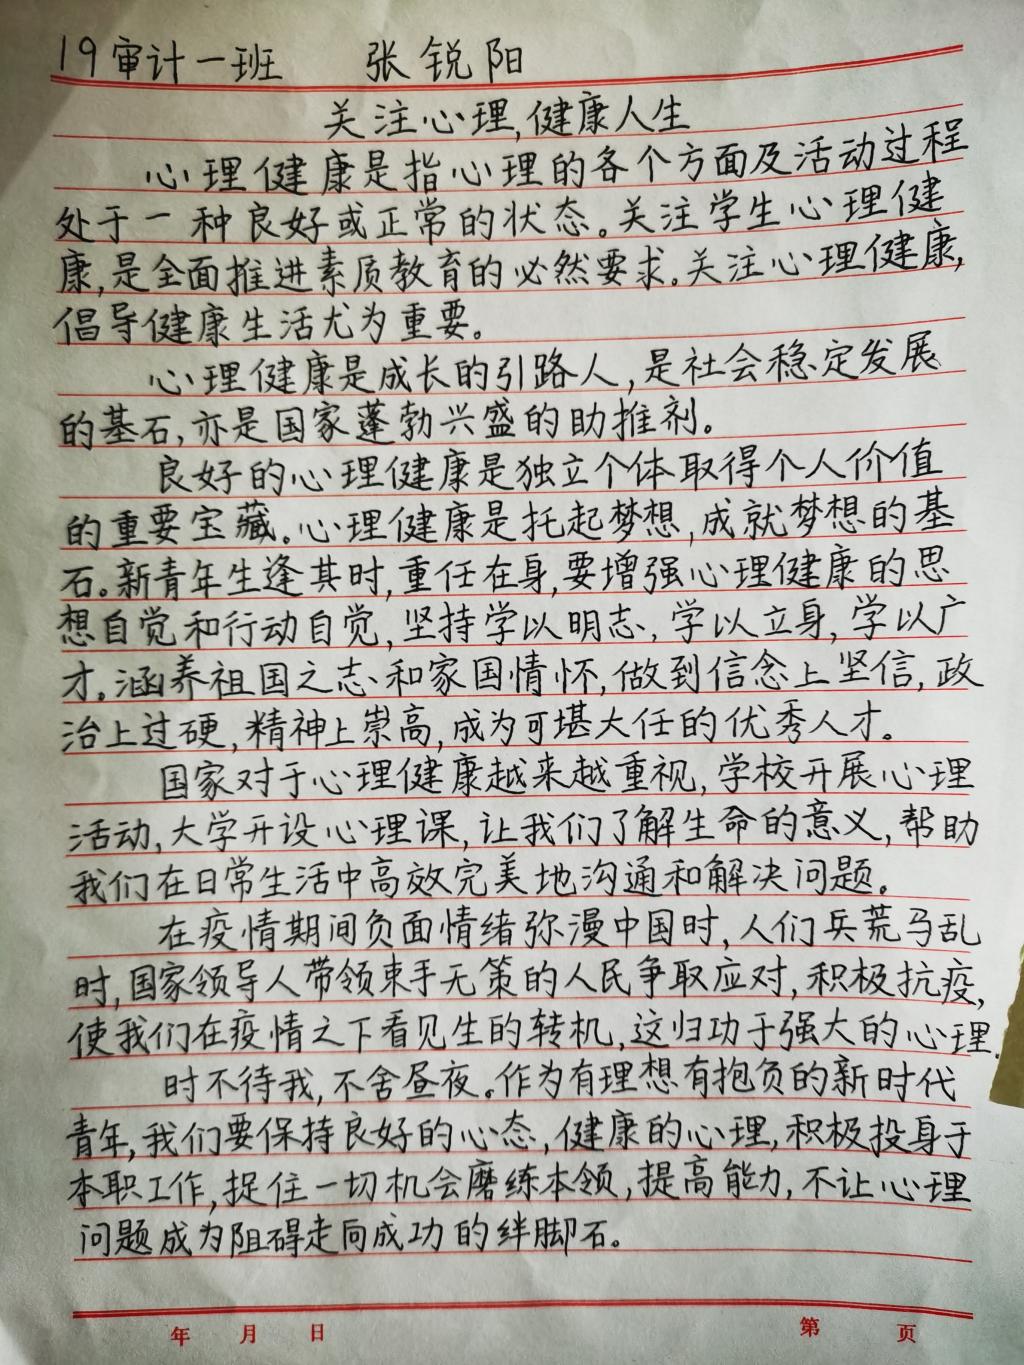 19审计一班 张锐阳
关注心理,健康人生
心理健康是指心理的各个方面及活动过程
处于一种良好或正常的状态。关注学生心理健
康,是全面推进素质教育的必然要求。关注心理健康,
倡导健康生活尤为重要。
心理健康是成长的引路人,是社会稳定发展
的基石,亦是国家蓬勃兴盛的助推剂。
良好的心理健康是独立个体取得个人价值
的重要宝藏。心理健康是托起梦想,成就梦想的基
石。新青年生逢其时,重任在身,要增强心理健康的思
想自觉和行动自觉,坚持学以明志,学以立身,学以广
才。涵养祖国之志和家国情怀,做到信念上坚信,政
治上过硬,精神上崇高,成为可堪大任的优秀人才。
国家对于心理健康越来越重视,学校开展心理
活动,大学开设心理课,让我们了解生命的意义,帮助
我们在日常生活中高效完美地沟通和解决问题。
在疫情期间负面情绪弥漫中国时,人们兵荒马乱
时,国家领导人带领束手无策的人民争取应对,积极抗疫,
使我们在疫情之下看见生的转机,这归功于强大的心理.
时不待我,不舍昼夜。作为有理想有抱负的新时代
青年,我们要保持良好的心态,健康的心理,积极投身于
本职工作,捉住一切机会磨练本领,提高能力,不让心理
问题成为阻碍走向成功的绊脚石。
年 月 日 第 页